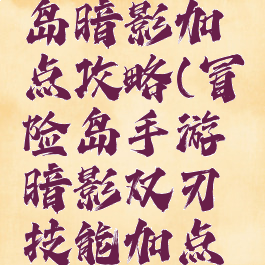 岛暗影加
点攻略(冒
险岛手游
暗影双刃
技能加点